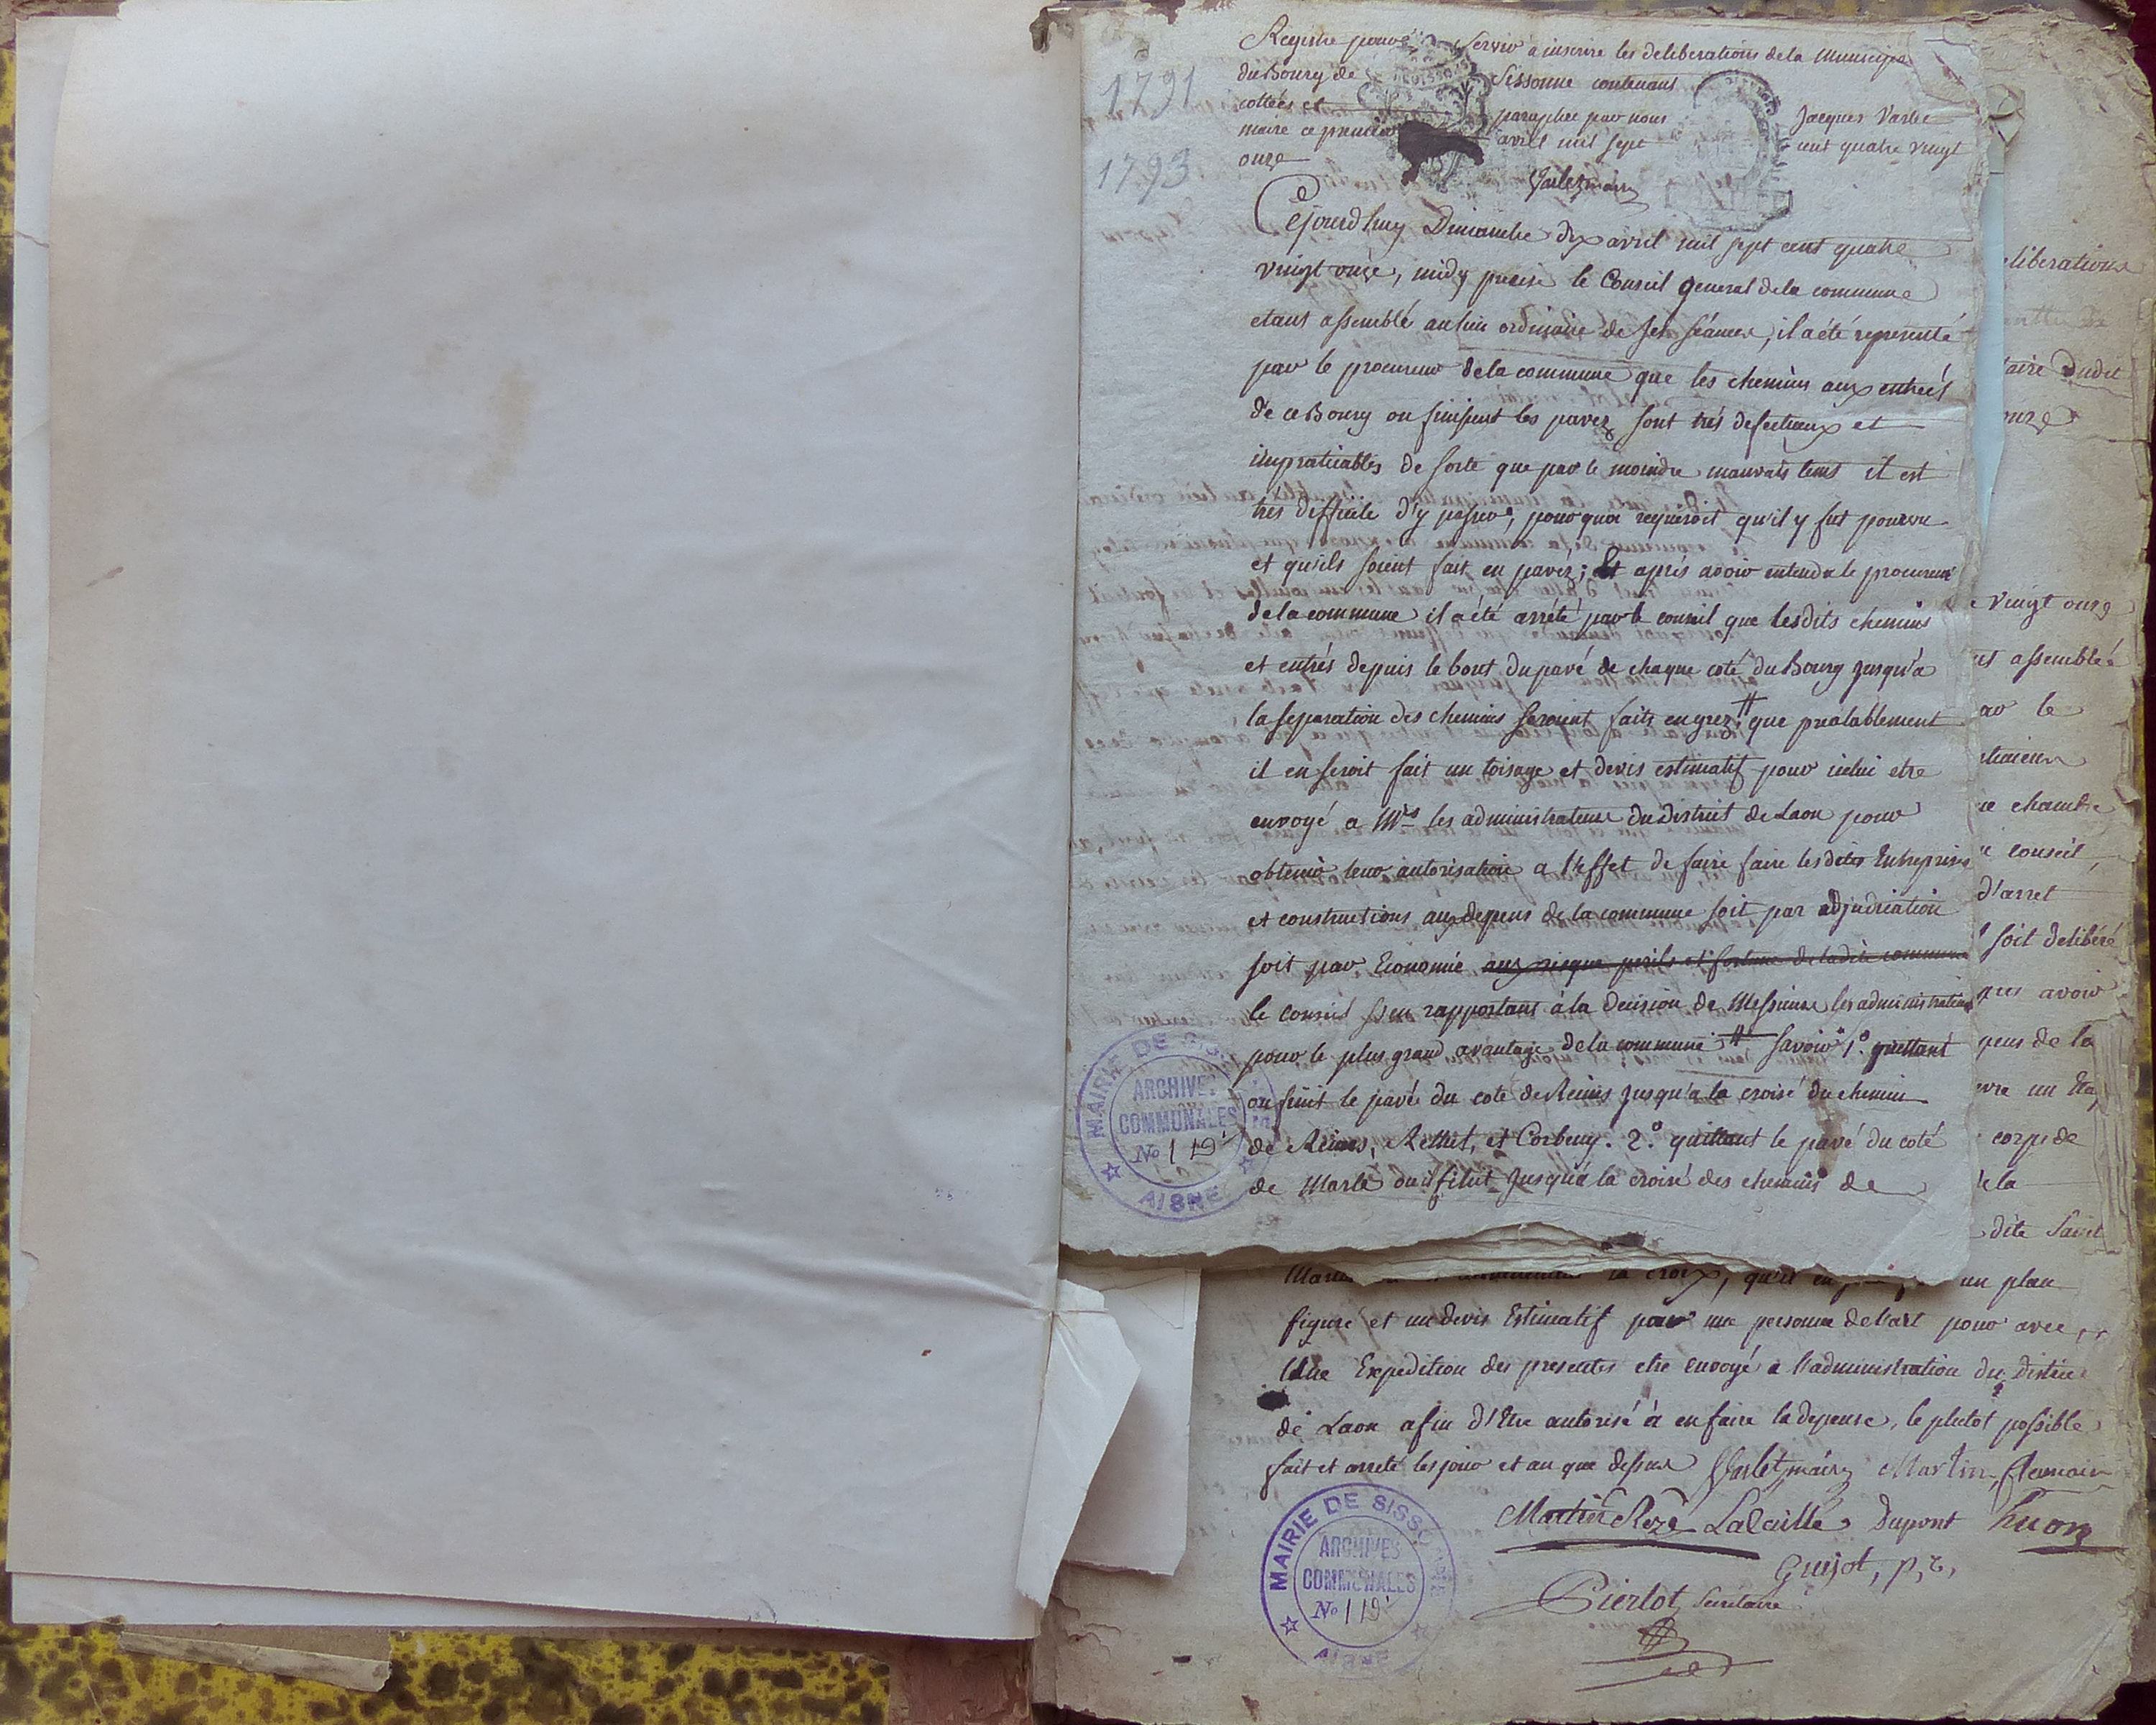 1791
1793
Registre pour servir a inscrire les deliberations de la Municip
du Bourg de Sissonne contenant
cottées et paraphée par nous Jacques Varlet
maire ce premier avril mil sept cent quatre vingt
onze
Varlet maire
Cejourd'huy Dimanche dix avril mil sept cent quatre
vingt onze, midy precise le Conseil general de la commune
etant assemblé au lieu ordinaire de ses séances, il a été representé
par le procureur de la commune que les chemins aux entreés
de ce Bourg ou finissent les pavez sont trés defectueux et
impraticables de sorte que par le moindre mauvais tems il est
trés difficile d'y passer, pourquoi requeroit qu'il y fut pourvu
et qu'ils soient fait en pavez; Et aprés avoir entendu le procureur
de la commune il a été arrété par le conseil que lesdits chemins
et entrés depuis le bout du pavé de chaque coté du Bourg jusqu'a
la separation des chemins seroient faits en grez; # que prealablement
il en seroit fait un toisage et devis estimatif pour icelui etre
envoyé a Mrs les administrateurs du district de Laon pour
obtenir leur autorisation a l'effet de faire faire lesdites Entreprises
et constructions aux depens de la commune soit par adjudication
soit par Economie aux risque perils et fortune de ladite commune
le conseil s'en rapportant à la decision de Messieurs les administrateurs
pour le plus grand avantage de la commune; # savoir 1.° quittant
ou finit le pavée du coté de Reims jusqu'a la croisé du chemin
de Reims, Rethel, et Corbeny. 2.° quittant le pavé du coté
de Marle ou il finit jusqu'a la croisé des chemins de
MAIRIE DE SIS
ARCHIVES
COMMUNALES
No 119
AISNE
liberations
taire dudit
onze
vingt onze
nt assemblée
ar le
ue chambre
conseil,
d'arret
soit deliberé
res avoir
pens de la
vre un
corps de
de la
dite Saint
la croix, qu'il en un plan
figuré et un devis Estimatif par une personne de l'art pour avec
Une Expedition des presentes etre envoyé a l'administration du District
de Laon afin d'Etre autorisé à en faire la depense, le plutot possible
fait et arreté les jour et an que dessus Varlet maire Martin
Martin Rozé Lacaille Dupont huon
Guejot, p, c,
Pierlot Secretaire
MAIRIE DE SISSONNE
ARCHIVES
COMMUNALES
No 119
AISNE